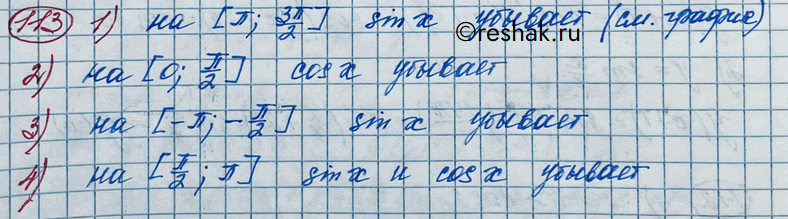 113 1) на [π; 3π/2] sin x убывает (см. график)
©reshak.ru
2) на [0; π/2] cos x убывает
3) на [-π; -π/2] sin x убывает
4) на [π/2; π] sin x и cos x убывает